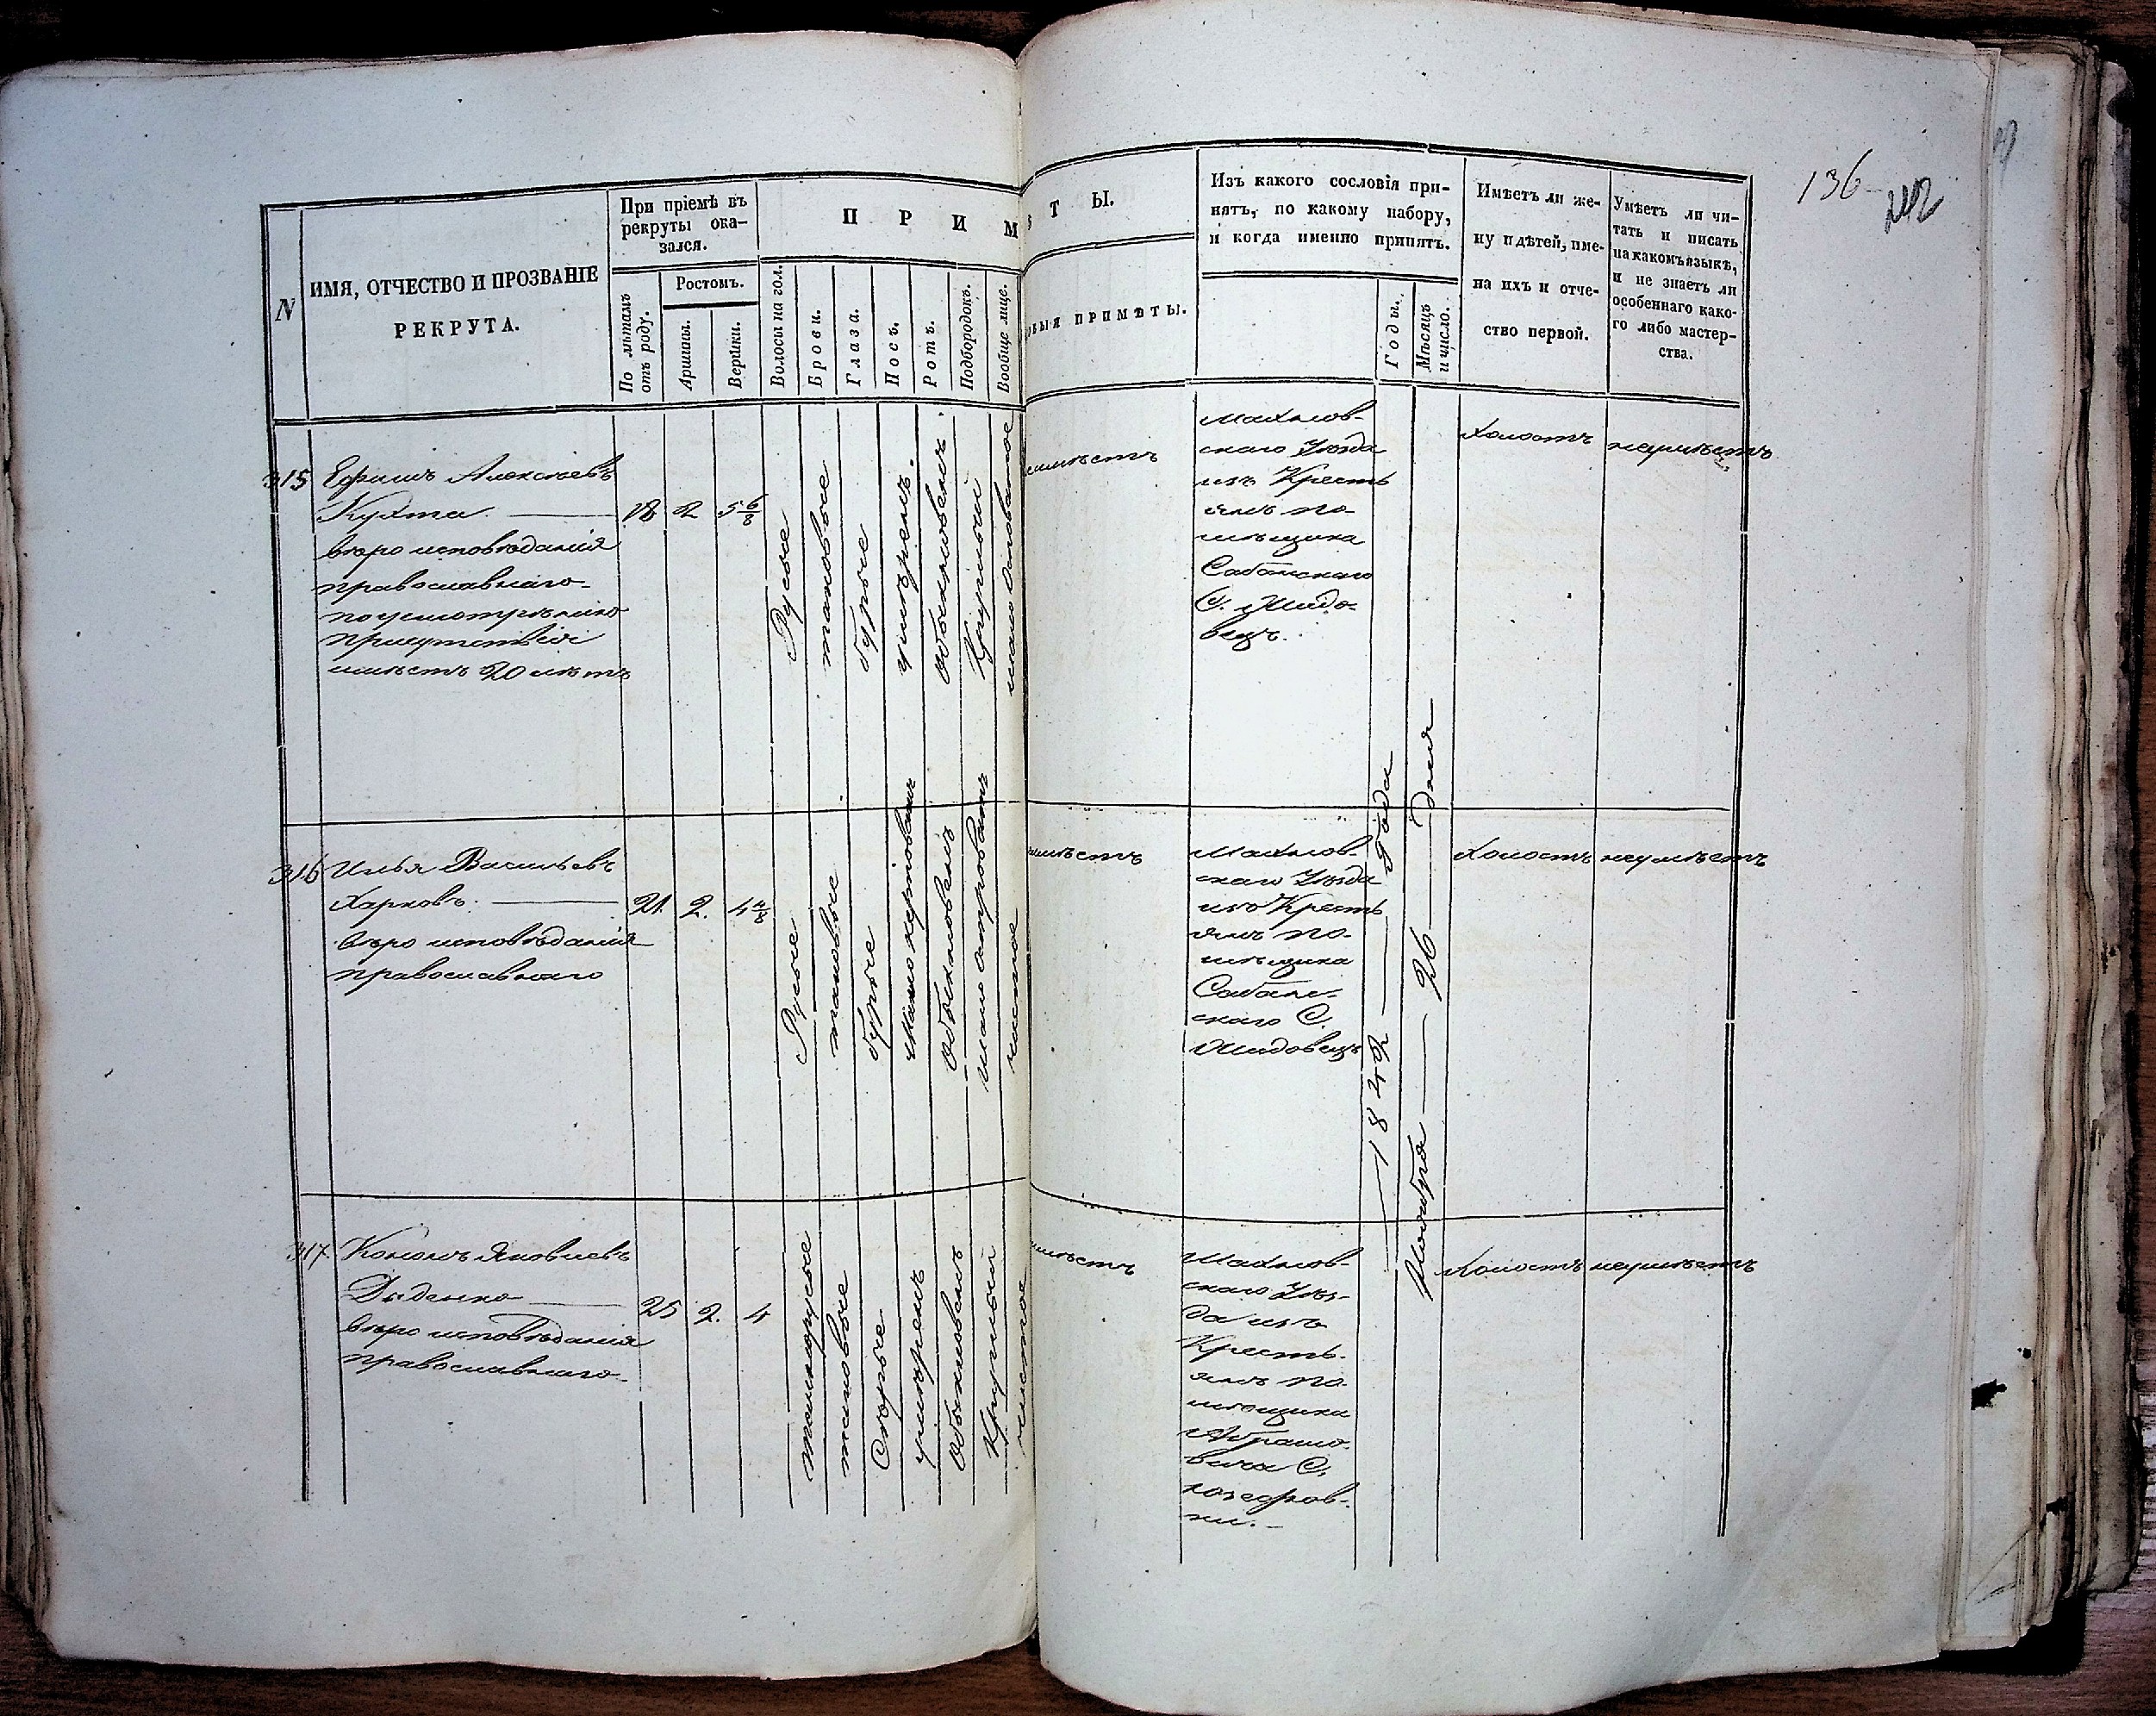 136
N
ИМЯ, ОТЧЕСТВО И ПРОЗВАНІЕ
РЕКРУТА.
При пріемѣ въ
рекруты ока-
зался.
По лѣтамъ
отъ роду.
Ростомъ.
Аршина.
Вершки.
П Р И М
Волосы на гол.
Брови.
Глаза.
Носъ.
Ротъ.
Подбородокъ.
Вообще лице.
Т Ы.
ОБЫЯ ПРИМѢТЫ.
Изъ какого сословія при-
нятъ, по какому набору,
и когда именно принятъ.
Годы.
Мѣсяцъ
и число.
Имѣетъ ли же-
ну и дѣтей, име-
на ихъ и отче-
ство первой.
Умѣетъ ли чи-
тать и писать
на какомъ языкѣ,
и не знаетъ ли
особеннаго како-
го либо мастер-
ства.
315
Ефимъ Алексѣевъ
Кухта.
вѣроисповѣданія
православнаго
по усмотрѣнію
присутствія
имѣетъ 20 лѣтъ
18
2
5 6/8
Русые
таковые
бурые
умѣренъ.
обыкновенъ.
Круглый
мало осповатое
имѣетъ
Махнов-
скаго Уѣзда
изъ Кресть
янъ по-
мѣщика
Сабанскаго
С. Жидо-
вецъ.
холостъ
неумѣетъ
316
Илья Васильевъ
Харковъ.
вѣроисповѣданія
православнаго
21.
2.
4 4/8
Русые
таковые
бурые
обыкновенъ
мало островатъ
чистое
имѣетъ
Махнов-
скаго Уѣзда
изъ Кресть
янъ по-
мѣщика
Сабан-
скаго С.
Жидовецъ
1842 Года
Ноября 26 дня
холостъ
неумѣетъ
317.
Кононъ Яковлевъ
Диденко
вѣроисповѣданія
православнаго
25
2.
4
темнорусые
таковые
Сѣрые
умѣренъ
Обыкновенъ
Круглый
чистое
имѣетъ
Махнов-
скаго Уѣз-
да изъ
Кресть-
янъ по-
мѣщика
Абрамо-
вича С.
ки.
Холостъ
неумѣетъ